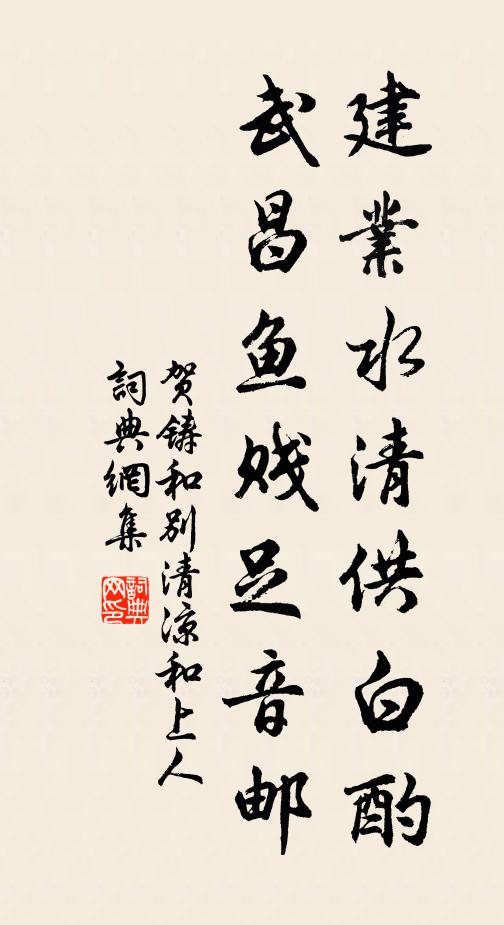 建業水清供白酌
武昌鱼贱足音邮
贺鑄和别清凉和上人
詞典網集
詞典
网印